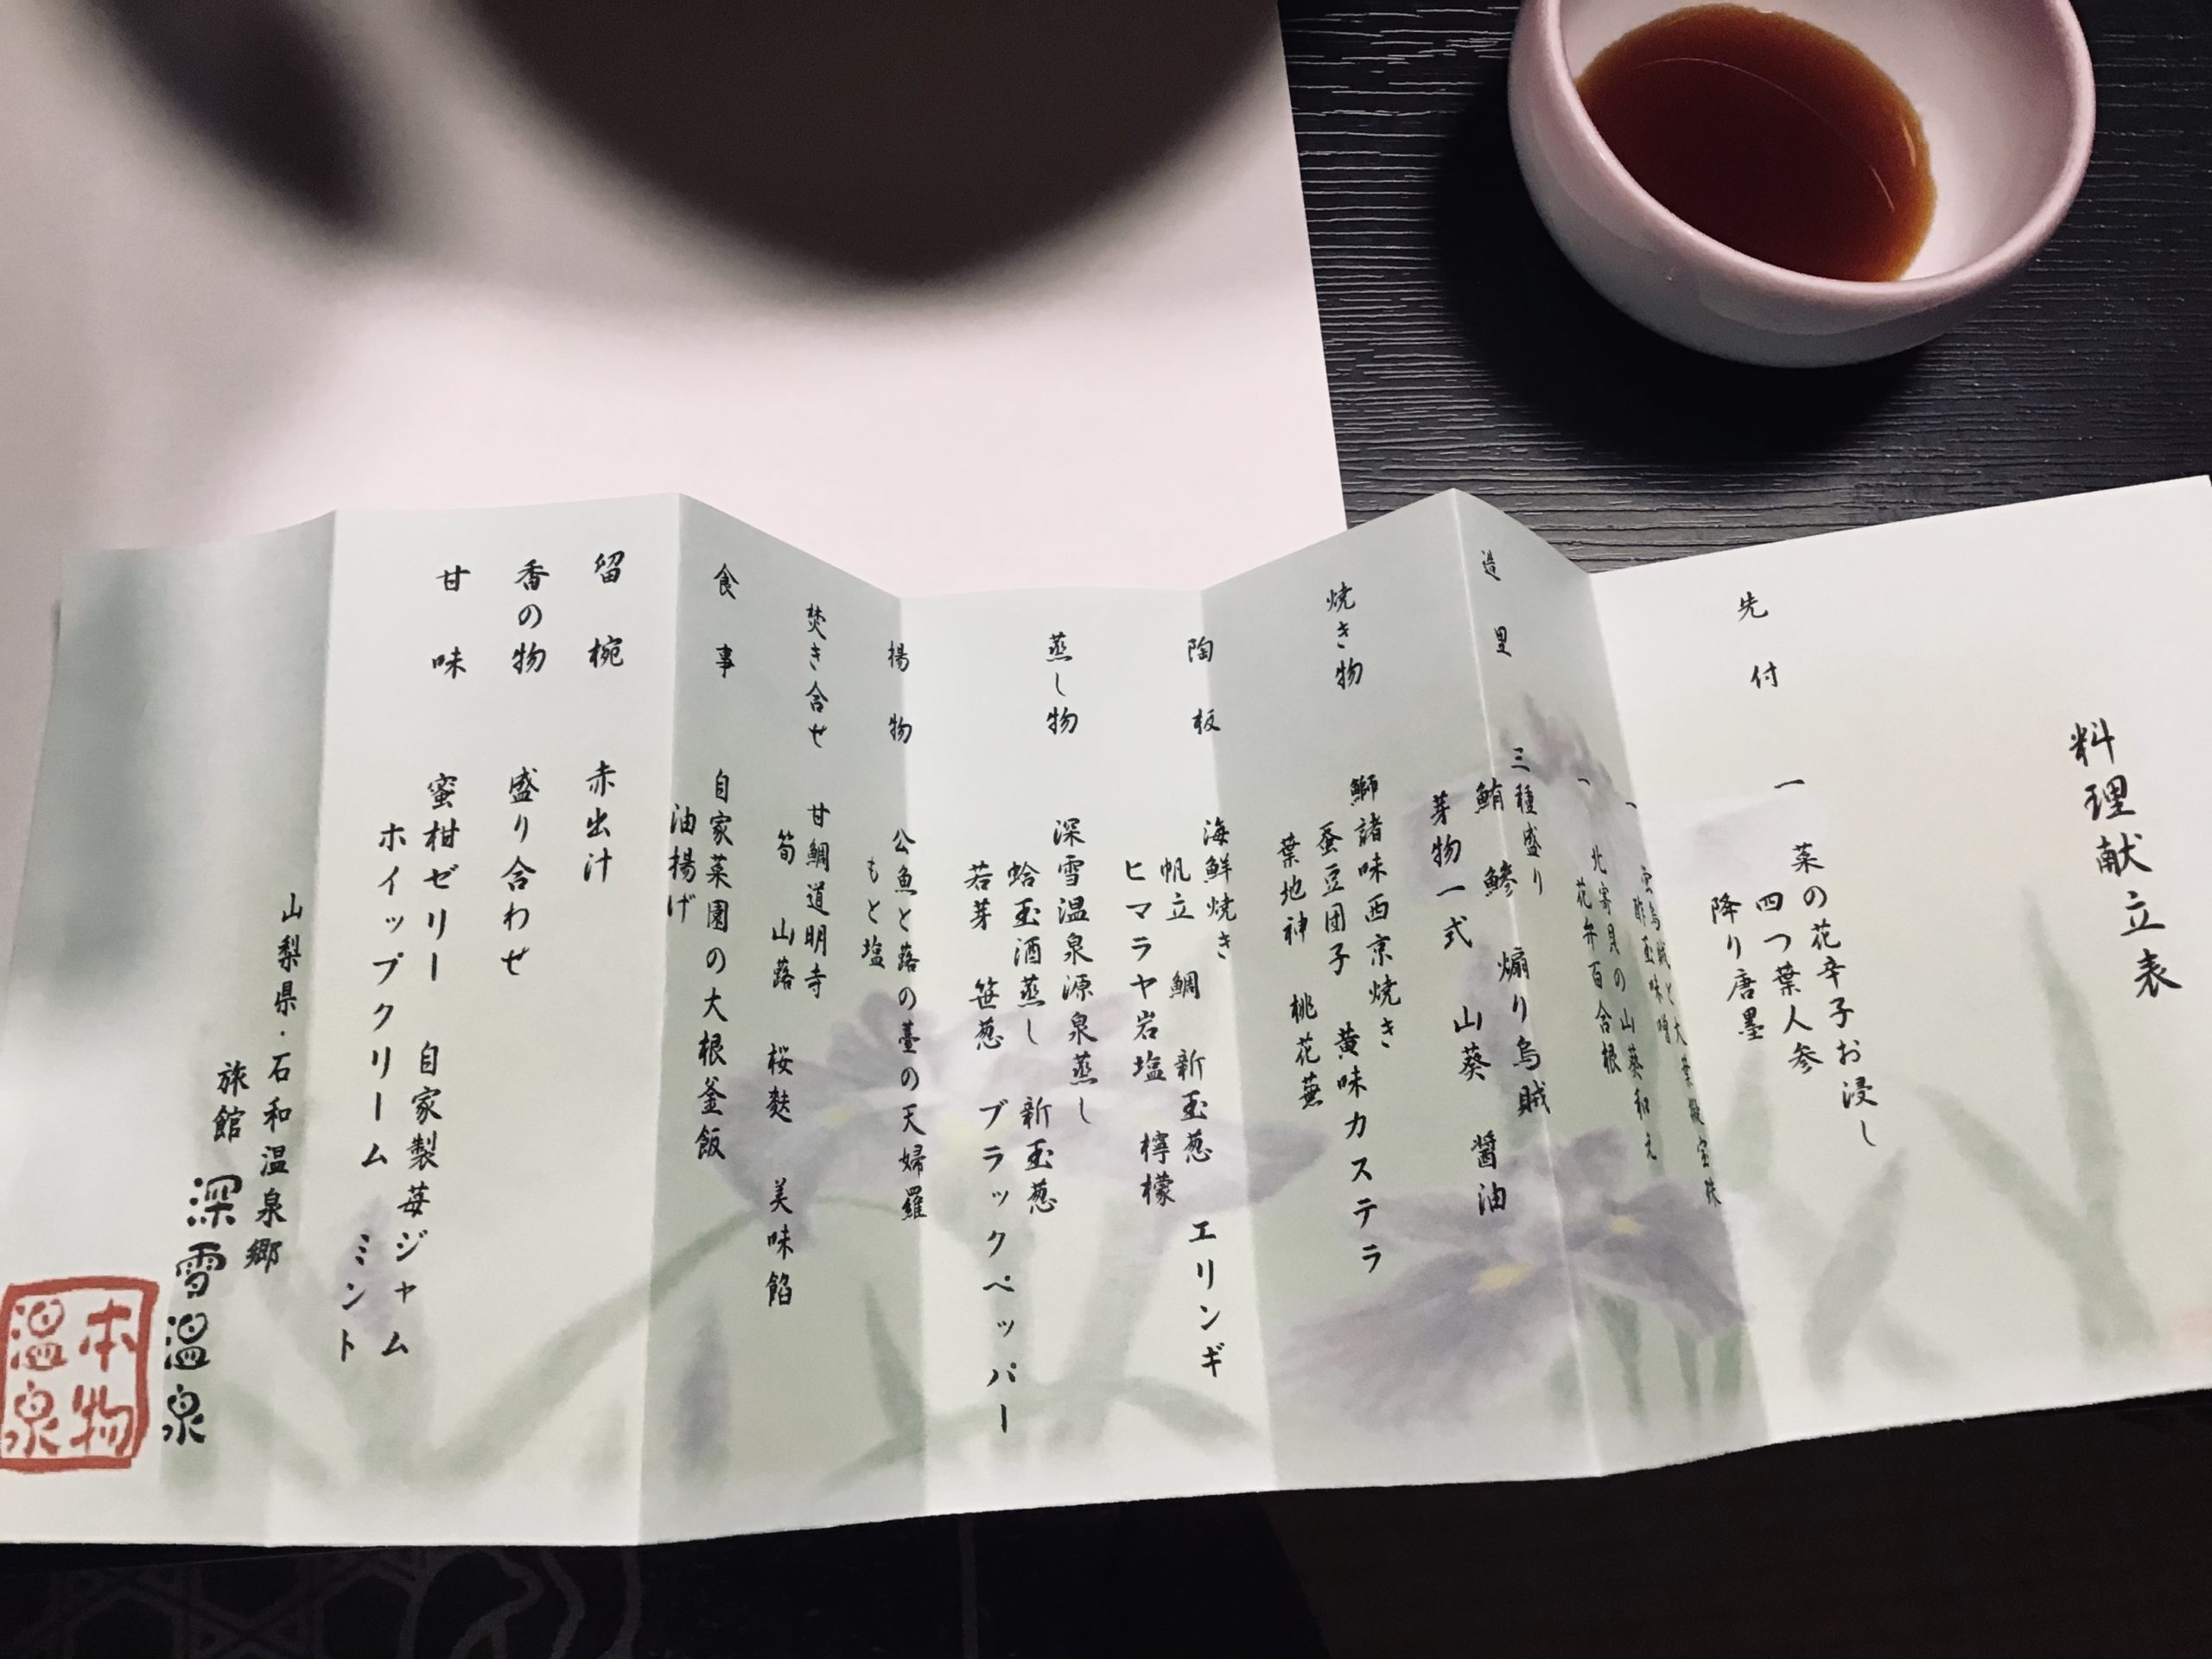 料理献立表
先付
一 菜の花辛子お浸し
四つ葉人参
降り唐墨
一
酢玉味噌
一 北寄貝の山葵和え
花弁百合根
造里
三種盛り 煽り烏賊
鮪 鰺 山葵 醤油
芽物一式
焼き物
鰤諸味西京焼き
蚕豆団子 黄味カステラ
葉地神 桃花蕪
陶板
海鮮焼き
帆立 鯛 新玉葱 エリンギ
ヒマラヤ岩塩 檸檬
蒸し物
深雪温泉源泉蒸し
蛤玉酒蒸し 新玉葱
若芽 笹葱 ブラックペッパー
揚物
公魚と蕗の薹の天婦羅
もと塩
焚き合せ
甘鯛道明寺
筍 山蕗 桜麩 美味餡
食事
自家菜園の大根釜飯
油揚げ
留椀 赤出汁
香の物 盛り合わせ
甘味
蜜柑ゼリー 自家製苺ジャム
ホイップクリーム ミント
山梨県・石和温泉郷
旅館 深雪温泉
本物
温泉